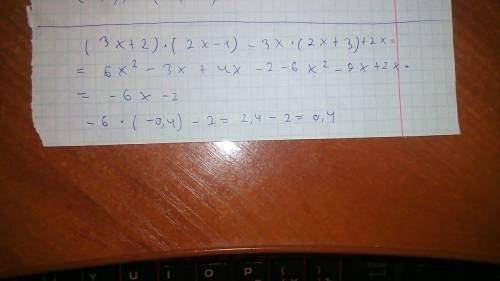 (3x+2)·(2x-1)-3x·(2x+3)+2x=
= 6x²-3x+4x-2-6x²-9x+2x=
= -6x-2
-6·(-0,4)-2=2,4-2=0,4
Y U I O P